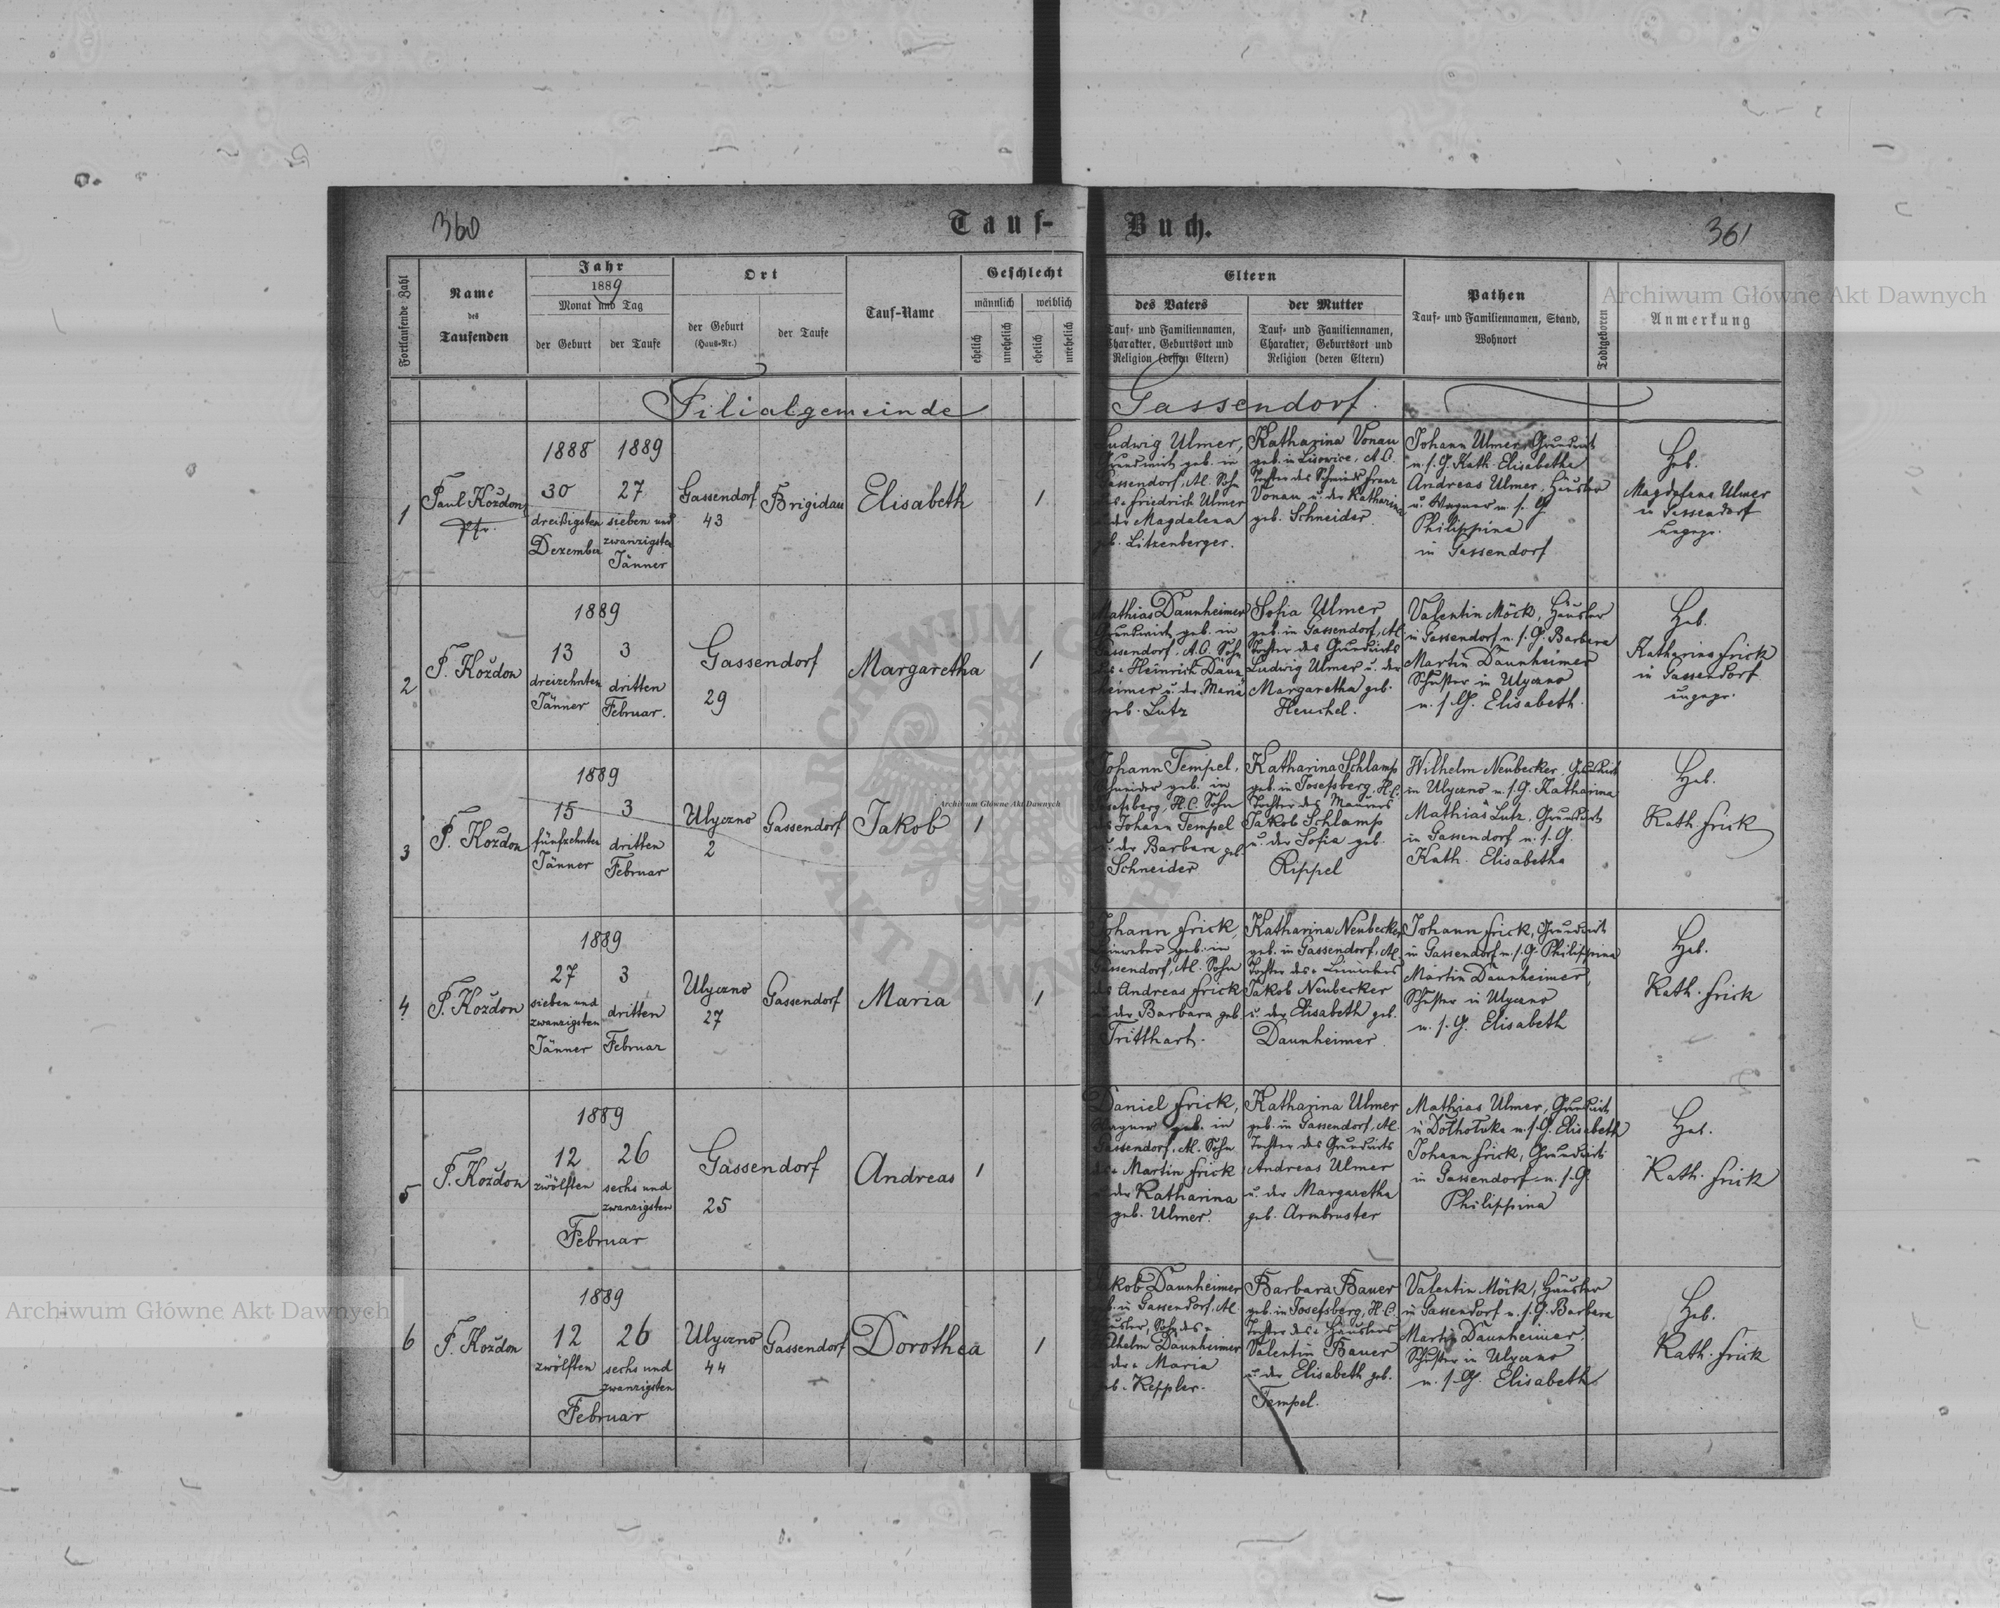 360
Tauf-
Buch.
361
Fortlaufende Zahl
Name
des
Taufenden
Jahr
1889
Monat und Tag
der Geburt
der Taufe
Ort
der Geburt
(Haus-Nr.)
der Taufe
Tauf-Name
Geschlecht
männlich
weiblich
ehelich
unehelich
ehelich
unehelich
Eltern
des Vaters
Tauf- und Familiennamen,
Charakter, Geburtsort und
Religion (dessen Eltern)
der Mutter
Tauf- und Familiennamen,
Charakter, Geburtsort und
Religion (deren Eltern)
Pathen
Tauf- und Familiennamen, Stand,
Wohnort
Todtgeboren
Anmerkung
Filialgemeinde
Gassendorf.
1
Paul Kozdon
Pfr.
1888
30
dreißigsten
Dezember
1889
27
sieben und
zwanzigsten
Jänner
Gassendorf
43
Brigidau
Elisabeth
1
Ludwig Ulmer,
Grundwirt geb. in
Gassendorf, Al. Sohn
des Friedrich Ulmer
u. der Magdalena
geb. Litzenberger.
Katharina Vonau
geb. in Lisowice, A.C.
Tochter des Schmieds Franz
Vonau u. der Katharina
geb. Schneider.
Johann Ulmer, Grundwirt
m. s. G. Kath. Elisabetha
Andreas Ulmer, Häusler
u. Wagner m. s. G.
Philippina
in Gassendorf
Heb.
Magdalena Ulmer
in Gassendorf
ungepr.
2
P. Kozdon
1889
13
dreizehnten
Jänner
3
dritten
Februar.
Gassendorf
29
Margaretha
1
Mathias Daunheimer
Grundwirt, geb. in
Gassendorf, A.C. Sohn
des Heinrich Daun
heimer u. der Maria
geb. Lutz
Sofia Ulmer
geb. in Gassendorf, Al.
Tochter des Grundwirts
Ludwig Ulmer u. der
Margaretha geb.
Heuchel.
Valentin Möck, Häusler
in Gassendorf m. s. G. Barbara
Martin Daunheimer
Schuster in Ulyczno
m. s. G. Elisabeth.
Heb.
Katharina Frick
in Gassendorf
ungepr.
3
P. Kozdon
1889
15
fünfzehnten
Jänner
3
dritten
Februar
Ulyczno
2
Gassendorf
Jakob
1
Johann Tempel,
Schneider geb. in
Josefsberg, H.C. Sohn
des Johann Tempel
u. der Barbara geb.
Schneider
Katharina Schlamp
geb. in Josefsberg, H.C.
Tochter des Maurers
Jakob Schlamp
u. der Sofia geb.
Rippel
Wilhelm Neubecker, Grundwirt
in Ulyczno m. s. G. Katharina
Mathias Lutz, Grundwirt
in Gassendorf m. s. G.
Kath. Elisabetha
Heb.
Kath. Frick
4
P. Kozdon
1889
27
sieben und
zwanzigsten
Jänner
3
dritten
Februar
Ulyczno
27
Gassendorf
Maria
1
Johann Frick,
Leinweber geb. in
Gassendorf, Al. Sohn
des Andreas Frick
u. der Barbara geb.
Tritthart.
Katharina Neubecker
geb. in Gassendorf, Al.
Tochter des
Jakob Neubecker
u. der Elisabeth geb.
Daunheimer.
Johann Frick, Grundwirt
in Gassendorf m. s. G. Philippina
Martin Daunheimer,
Schuster in Ulyczno
m. s. G. Elisabeth
Heb.
Kath. Frick
5
P. Kozdon
1889
12
zwölften
26
sechs und
zwanzigsten
Februar
Gassendorf
25
Andreas
1
Daniel Frick,
Wagner geb. in
Gassendorf, Al. Sohn
des Martin Frick
u. der Katharina
geb. Ulmer.
Katharina Ulmer
geb. in Gassendorf, Al.
Tochter des Grundwirts
Andreas Ulmer
u. der Margaretha
geb. Armbruster
Mathias Ulmer, Grundwirt
in Dolhotuka m. s. G. Elisabeth
Johann Frick, Grundwirt
in Gassendorf m. s. G.
Philippina
Heb.
Kath. Frick
6
P. Kozdon
1889
12
zwölften
26
sechs und
zwanzigsten
Februar
Ulyczno
44
Gassendorf
Dorothea
1
Jakob Daunheimer
geb. in Gassendorf, Al.
Häusler, Sohn des
Wilhelm Daunheimer
u. der Maria
geb. Keppler.
Barbara Bauer
geb. in Josefsberg, H.C.
Tochter des Häuslers
Valentin Bauer
u. der Elisabeth geb.
Tempel.
Valentin Möck, Häusler
in Gassendorf m. s. G. Barbara
Martin Daunheimer.
Schuster in Ulyczno
m. s. G. Elisabeth
Heb.
Kath. Frick
Archiwum Główne Akt Dawnych
Archiwum Główne Akt Dawnych
Archiwum Główne Akt Dawnych